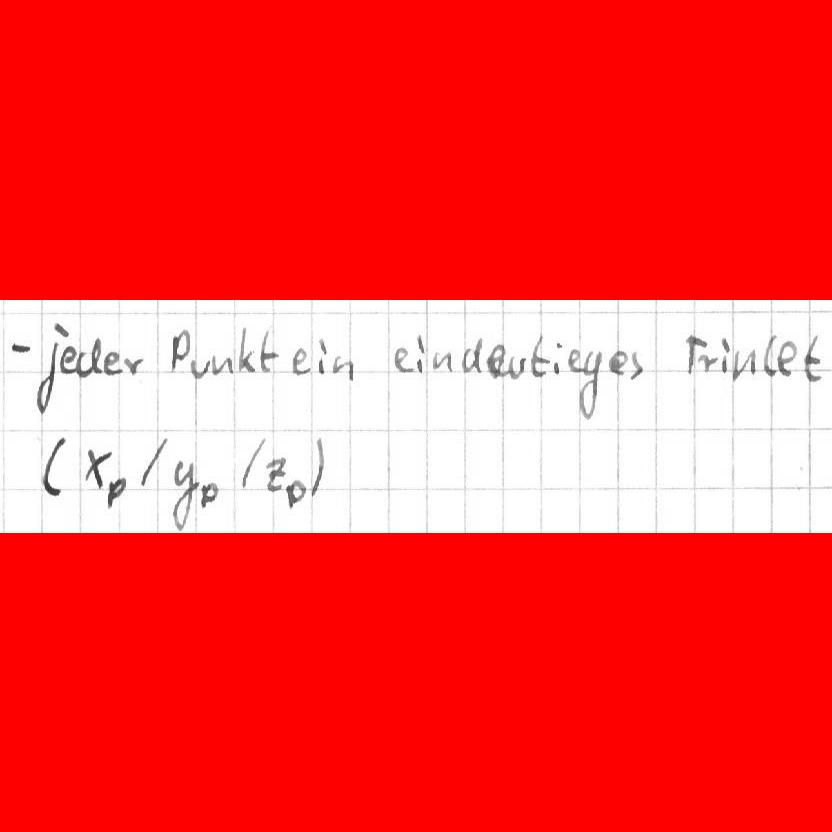 - jeder Punkt ein eindeutieges Trinlet
(xₚ/yₚ/zₚ)